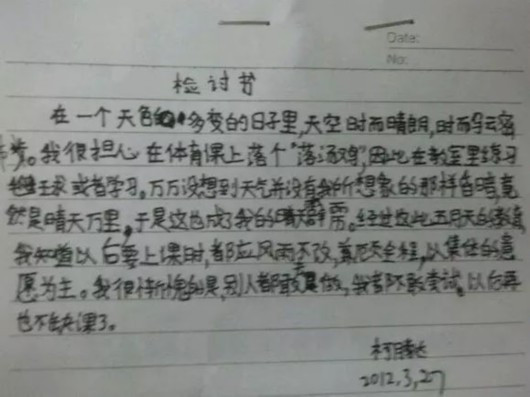 Date:
No:
检讨书
在一个天色多变的日子里,天空时而晴朗,时而乌云密
布。我很担心在体育课上落个"落汤鸡",因此在教室里练习
或者学习。万万没想到天气并没有我所想象的那样昏暗,竟
然是晴天万里。于是这也成了我的晴天霹雳。经过这
我知道以后要上课时,都应风雨不改,以集体的意
愿为主。我很惭愧的是,别人都敢做,我都不敢尝试。以后再
也不缺课了。
柯腾达
2012,3,27